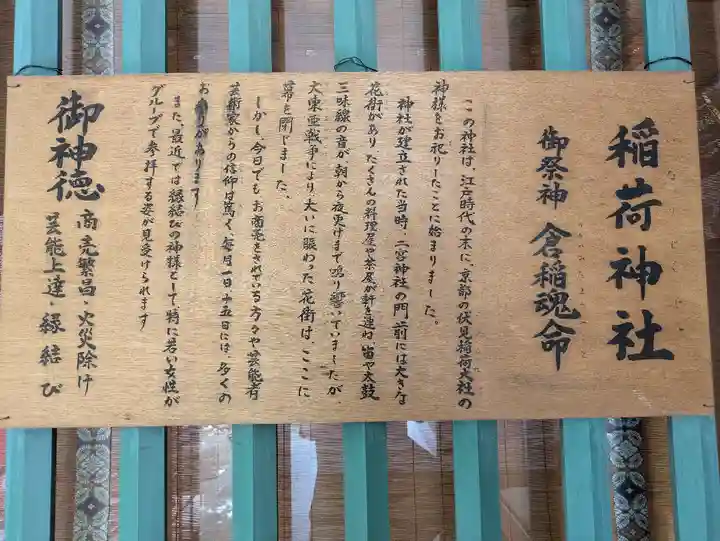 稲荷神社
御祭神 倉稲魂命
この神社は、江戸時代の末に、京都の伏見稲荷大社の
神様をお祀りしたことに始まりました。
神社が建立された当時、二宮神社の門前には大きな
花街があり、たくさんの料理屋や茶屋が軒を連ね、笛や太鼓
三味線の音が朝から夜更けまで鳴り響いていましたが、
大東亜戦争により、大いに賑わった花街は、ここに
幕を閉じました。
しかし、今日でもお商売をされている方々や芸能者
芸術家からの信仰は篤く、毎月一日・十五日には、多くの
お参りがあります
また、最近では縁結びの神様として、特に若い女性が
グループで参拝する姿が見受けられます
御神徳
商売繁昌・火災除け
芸能上達・縁結び